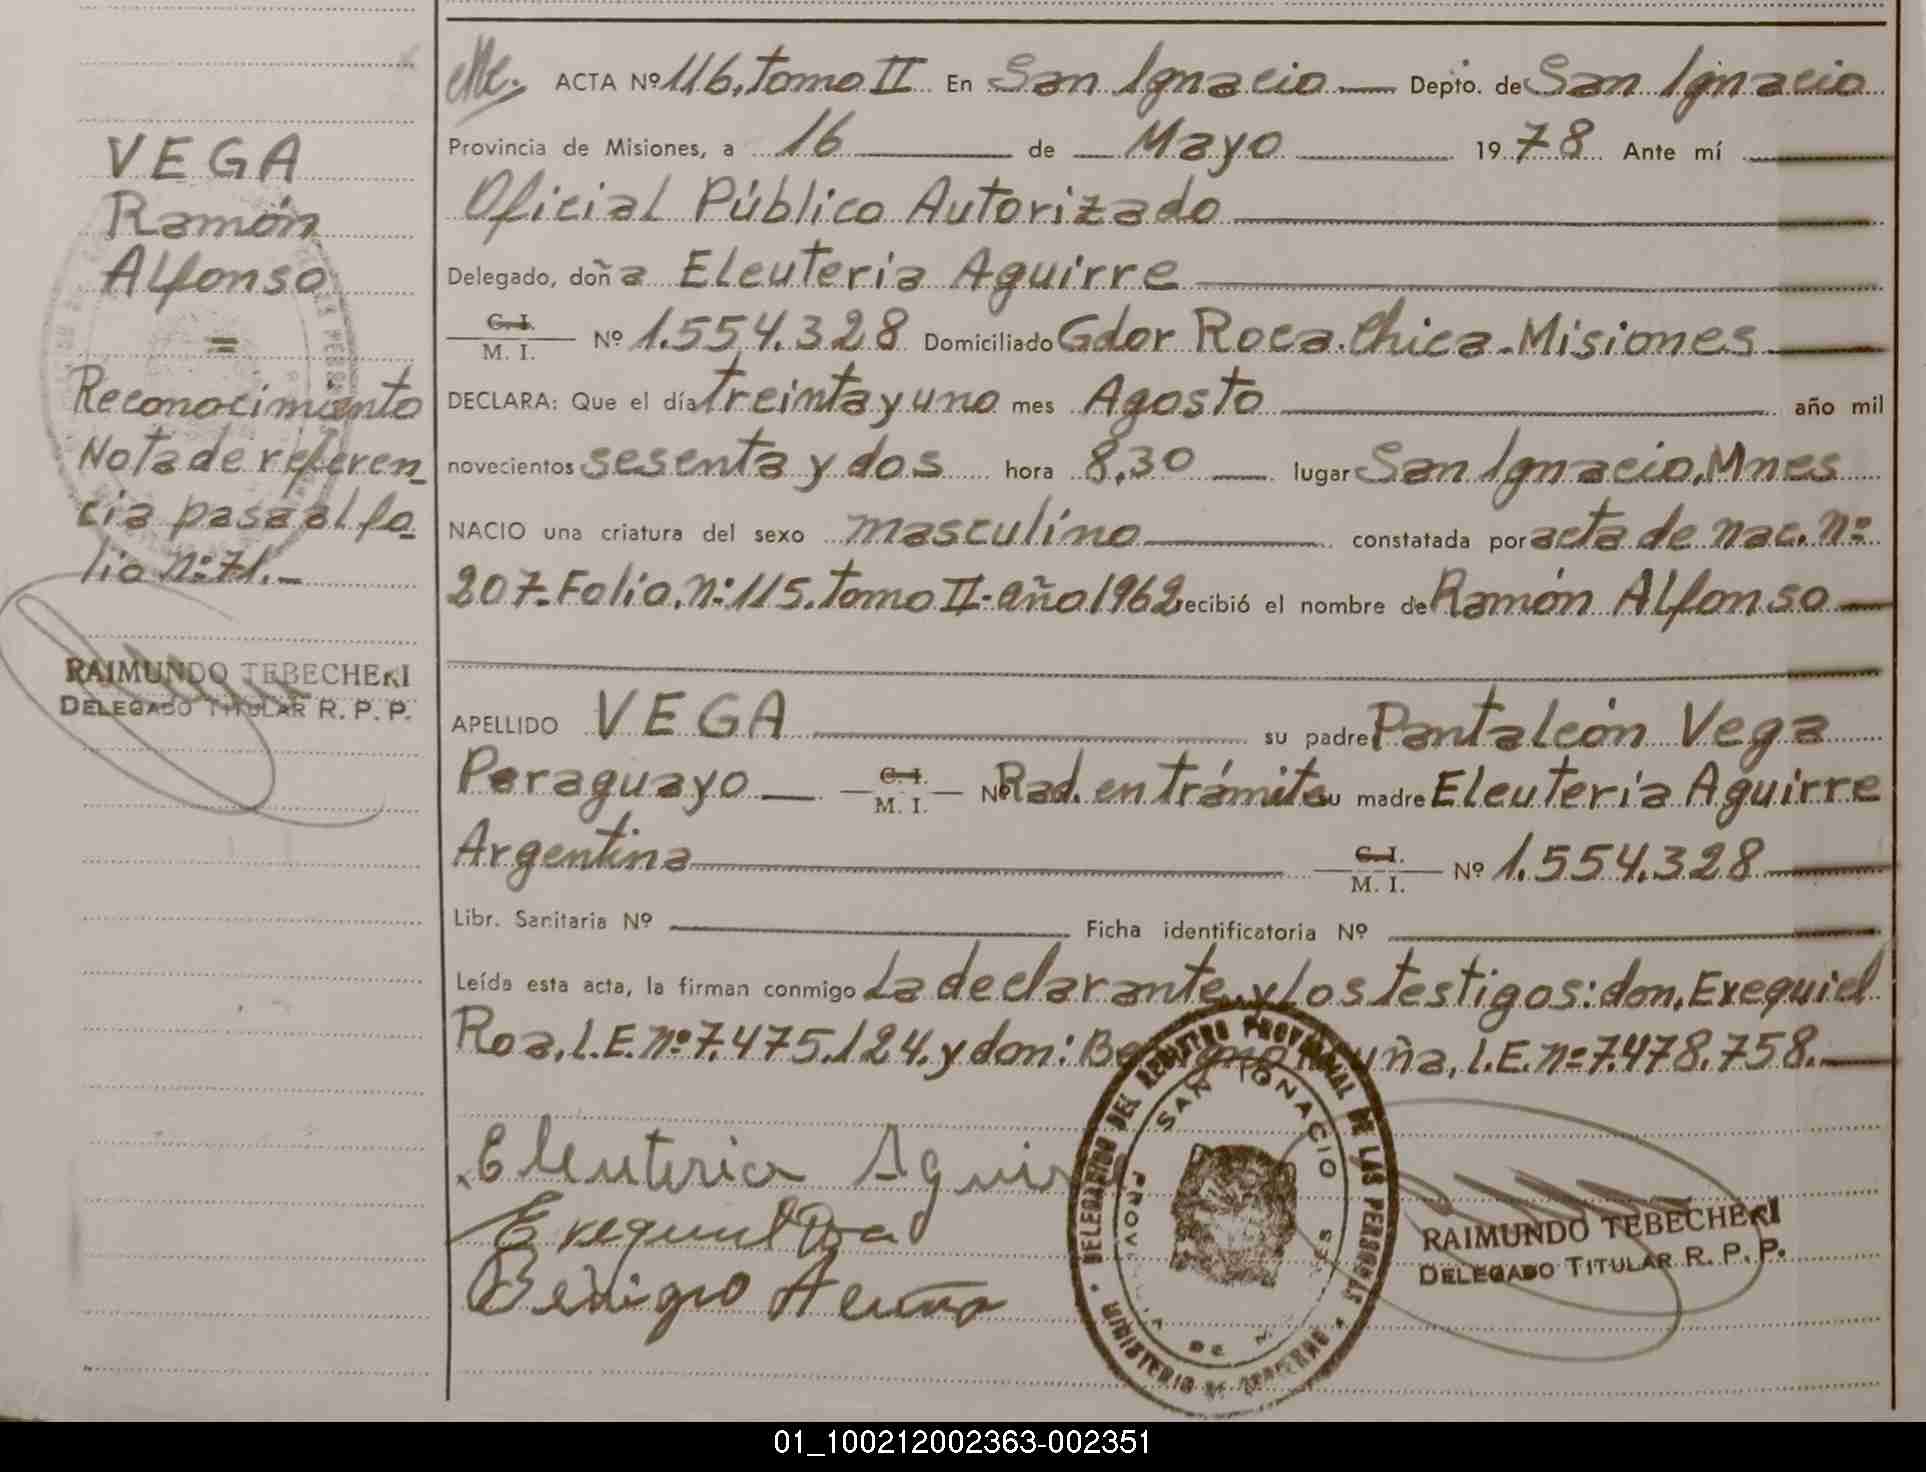 VEGA
Ramón
Alfonso
=
Reconocimiento
Nota de referen_
cia pasa al fo_
lio n:º 71._
RAIMUNDO TEBECHERI
DELEGADO TITULAR R. P. P.
ACTA Nº 116. Tomo II En San Ignacio Depto. de San Ignacio
Provincia de Misiones, a 16 de Mayo 1978 Ante mí
Oficial Público Autorizado
Delegado, doña Eleuteria Aguirre
C. I.
M. I. Nº 1.554.328 Domiciliado Gdor Roca. Chica - Misiones
DECLARA: Que el día treinta y uno mes Agosto año mil
novecientos sesenta y dos hora 8,30 lugar San Ignacio, Mnes
NACIO una criatura del sexo masculino constatada por acta de nac. nº
207. Folio. nº: 115. Tomo II - año 1962 recibió el nombre de Ramón Alfonso
APELLIDO VEGA su padre Pantaleón Vega
Paraguayo C. I.
M. I. Nº Rad. en trámite su madre Eleuteria Aguirre
Argentina C. I.
M. I. Nº 1.554.328
Libr. Sanitaria Nº Ficha identificatoria Nº
Leída esta acta, la firman conmigo La declarante, y los testigos: don, Exequiel
Roa, L.E. nº 7.475.124. y don: Benigno Acuña, L.E. nº 7.478.758.
Eleuteria Aguirre
Exequiel Roa
Benigno Acuña
DELEGACION DEL REGISTRO PROVINCIAL DE LAS PERSONAS
MINISTERIO DE GOBIERNO
SAN IGNACIO
PROVINCIA DE MISIONES
RAIMUNDO TEBECHERI
DELEGADO TITULAR R. P. P.
01_100212002363-002351